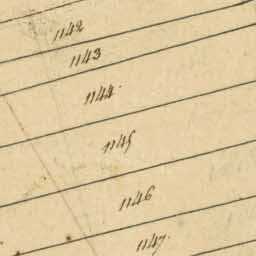 1142
1143
1144
1145
1146
1147.